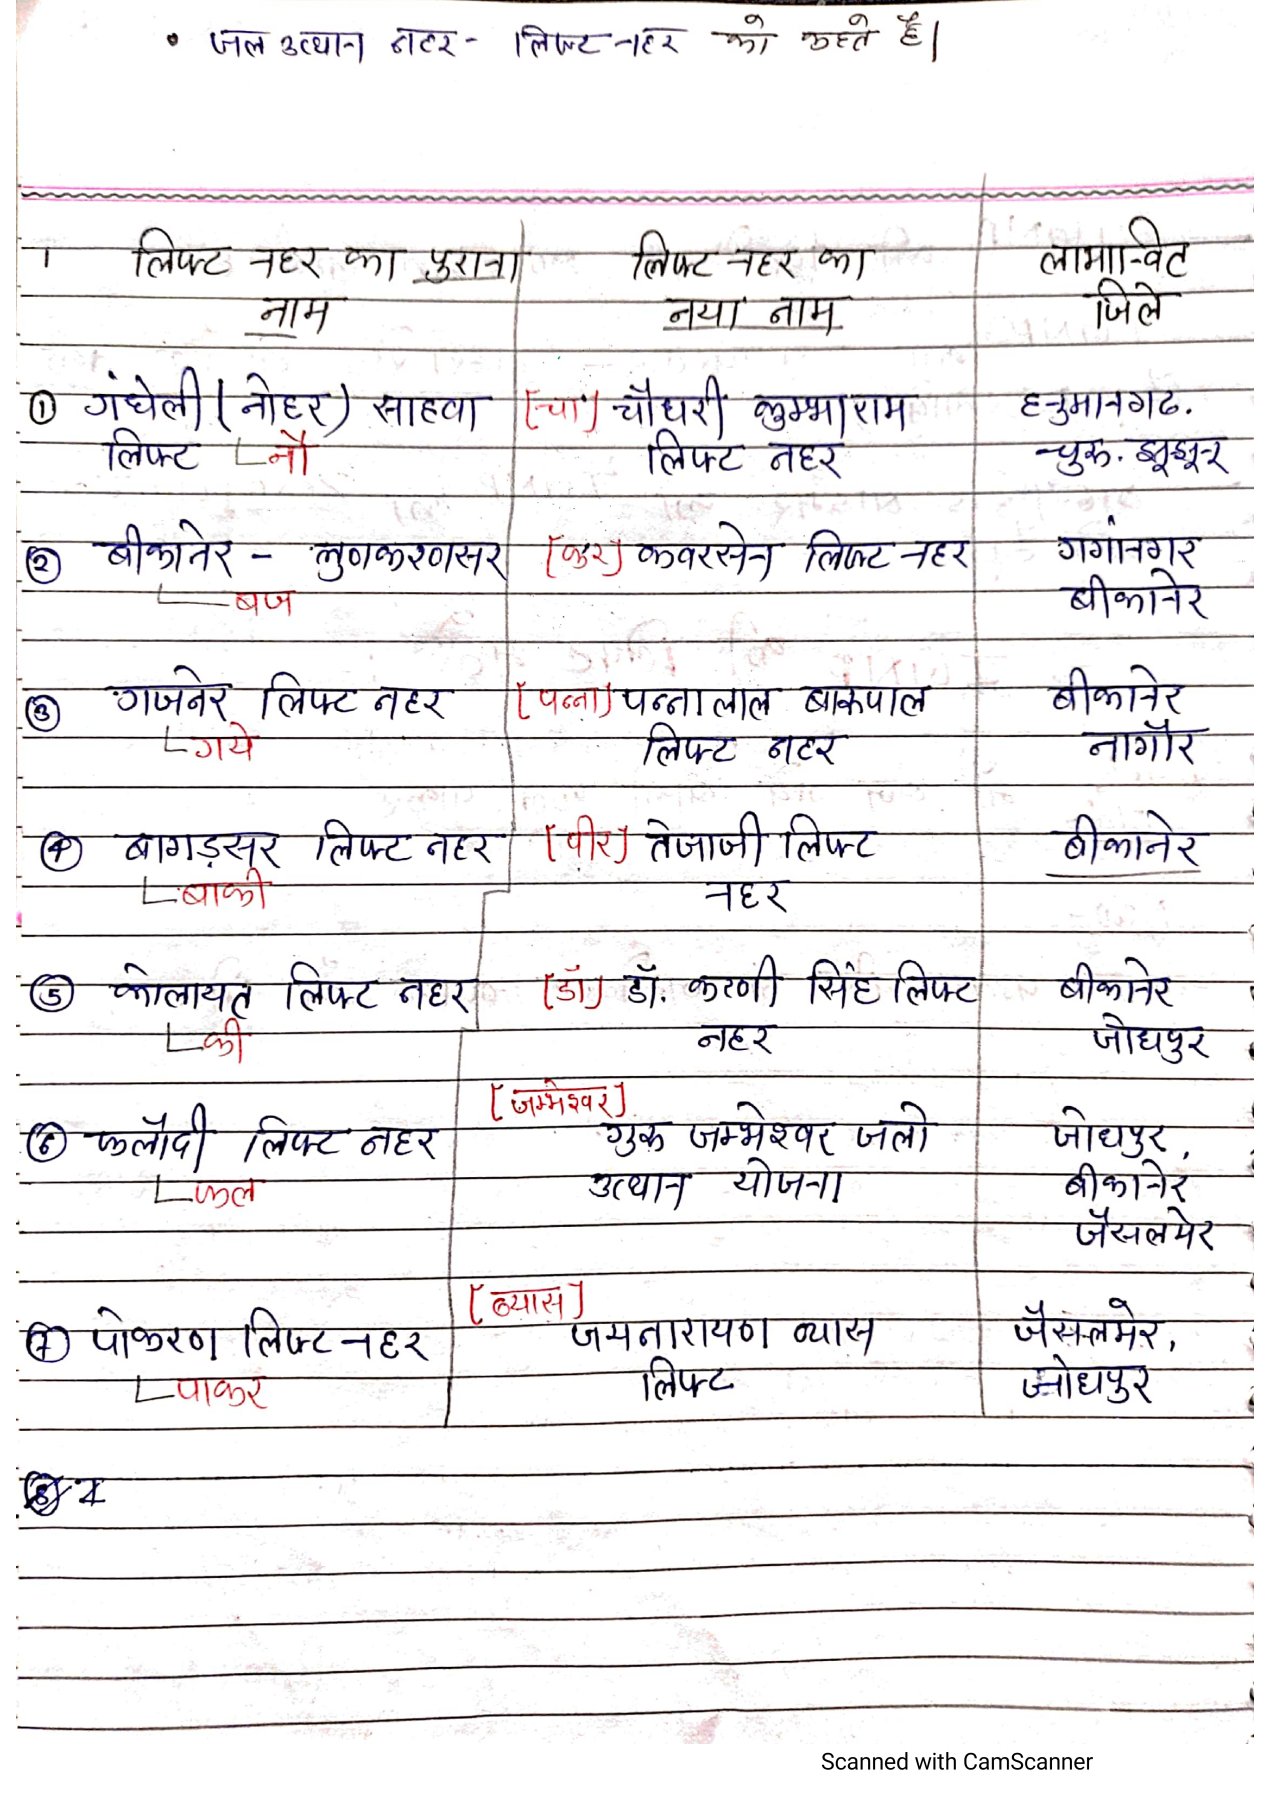 • जल उत्थान नहर - लिफ्ट नहर को कहते है।
लिफ्ट नहर का पुराना लिफ्ट नहर का लाभान्वित
नाम नया नाम जिले
① गंधेली (नोहर) साहवा [चौ] चौधरी कुम्भाराम हनुमानगढ.
लिफ्ट नौ लिफ्ट नहर चुरू. झूझूनूर
② बीकानेर - लुणकरणसर [कुर] कवरसेन लिफ्ट नहर गगांनगर
बज बीकानेर
③ गजनेर लिफ्ट नहर [पन्ना] पन्नालाल बाकपाल बीकानेर
गये लिफ्ट नहर नागौर
④ बागड़सर लिफ्ट नहर [वीर] तेजाजी लिफ्ट बीकानेर
बाकी नहर
⑤ कोलायत लिफ्ट नहर [डॉ] डॉ. करणी सिंह लिफ्ट बीकानेर
की नहर जोधपुर
[जम्भेश्वर]
⑥ फलौदी लिफ्ट नहर गुरू जम्भेश्वर जलो जोधपुर,
फल उत्थान योजना बीकानेर
जैसलमेर
[व्यास]
⑦ पोकरण लिफ्ट नहर जयनारायण व्यास जैसलमेर,
पाकर लिफ्ट जोधपुर
Scanned with CamScanner